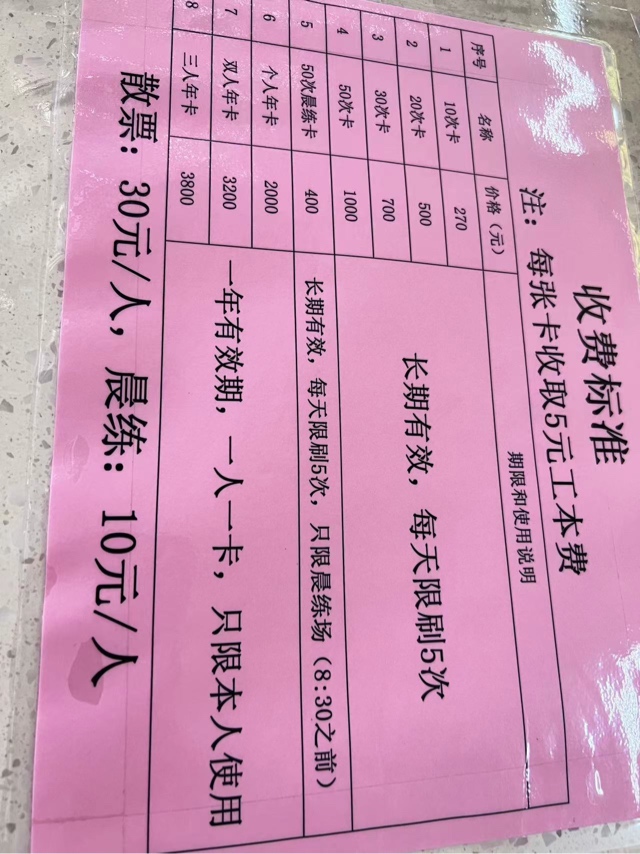 收费标准
注：每张卡收取5元工本费
序号 名称 价格（元） 期限和使用说明
1 10次卡 270
2 20次卡 500
长期有效，每天限刷5次
3 30次卡 700
4 50次卡 1000
5 50次晨练卡 400 长期有效，每天限刷5次，只限晨练场（8:30之前）
6 个人年卡 2000
7 双人年卡 3200 一年有效期，一人一卡，只限本人使用
8 三人年卡 3800
散票：30元/人，晨练：10元/人